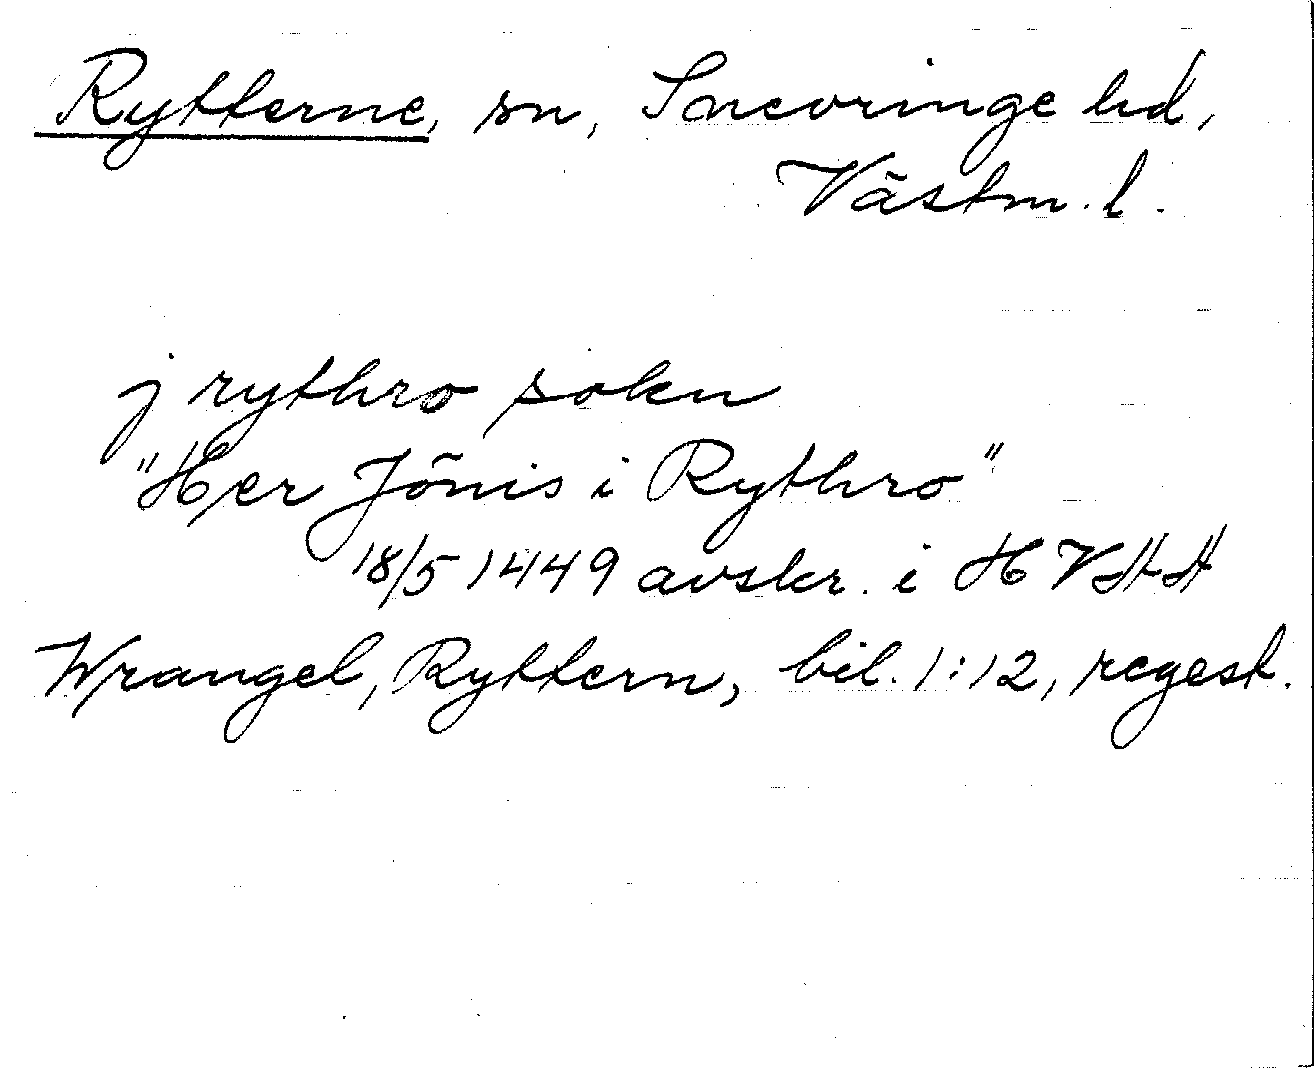 Rytterne, sn, Snevringe hd,
Västm. l.
j rythro sokn
"Her Jönis i Rythro"
18/5 1449 avskr. i HVHH
Wrangel, Ryttern, bil. 1:12, regest.